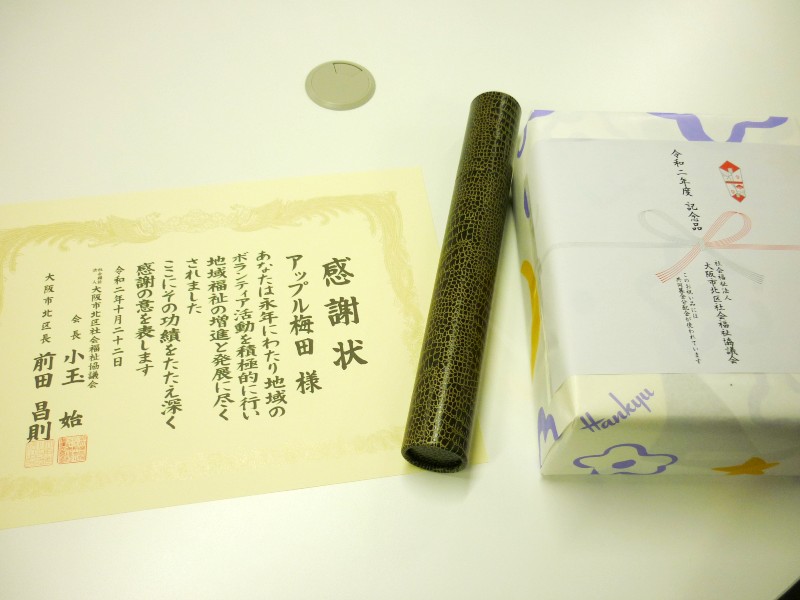 感謝状
アップル梅田 様
あなたは永年にわたり地域の
ボランティア活動を積極的に行い
地域福祉の増進と発展に尽く
されました
ここにその功績をたたえ深く
感謝の意を表します
令和二年十月二十二日
社会福祉法人 大阪市北区社会福祉協議会
会長 小玉 始
大阪市北区長 前田 昌則
令和二年度 記念品
社会福祉法人
大阪市北区社会福祉協議会
このお祝い品には
共同募金分配金が使われています
Hankyu